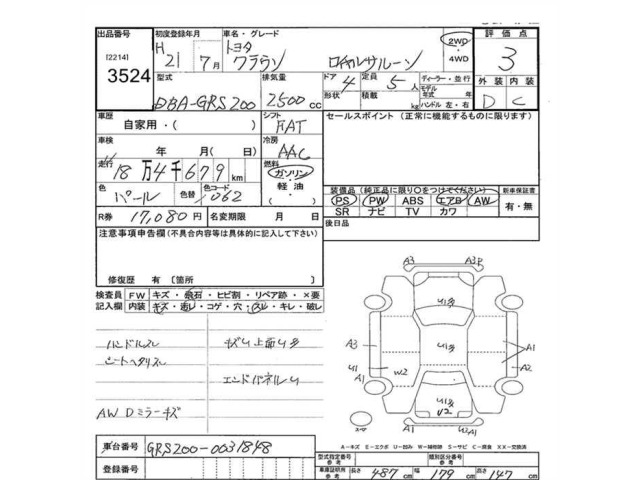 出品番号 初度登録年月 車名・グレード 2WD 評価点
H 21年 7月 トヨタ クラウン ロイヤルサルーン 4WD 3
[2214]
3524
型式 排気量 ドア 4 定員 5人 ディーラー・並行 外装 内装
DBA-GRS200 2500cc 形状 積載 kg モデル年式 年式 ハンドル 左・右 D C
車歴 シフト セールスポイント (正常に機能するものに限ります)
自家用・( ) FAT
車検 年 月( 日) 冷房 AAC
走行 18万4千679km 燃料 ガソリン・軽油・( )
色 パール 色替 色コード 062
装備品 (純正品に限り○をつけてください) 新車保証書
PS PW ABS エアB AW 有・無
SR ナビ TV カワ
R券 17,080円 名変期限 月 日 後日品
注意事項申告欄 (不具合内容等は具体的に記入して下さい)
修復歴 有 〔箇所 〕
検査員記入欄 FW キズ・飛石・ヒビ割・リペア跡・×要
内装 キズ・汚レ・コゲ・穴・スレ・キレ・破レ
ハンドルスレ キズU上面U多
シートヘタリスレ
エンドパネルU
AW Dミラーキズ
A3 A3P
U1多
A3 U1多 A1
U1 W2 A2
A1 U1多 A1
U2
A1 U2A1
スマ
A-キズ E-エクボ U-凹み W-補修跡 S-サビ C-腐食 XX-交換済
車台番号 GRS200-0031848
登録番号
型式指定番号 参考 類別区分番号 参考
車庫証明用 参考 長さ 487cm 幅 179cm 高さ 147cm